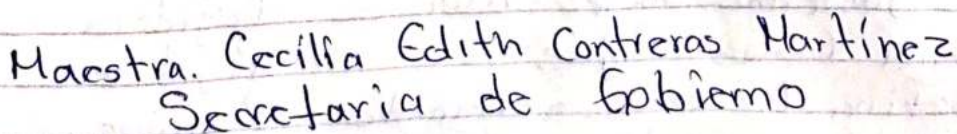 Maestra. Cecilia Edith Contreras Martínez
Secretaria de Gobierno